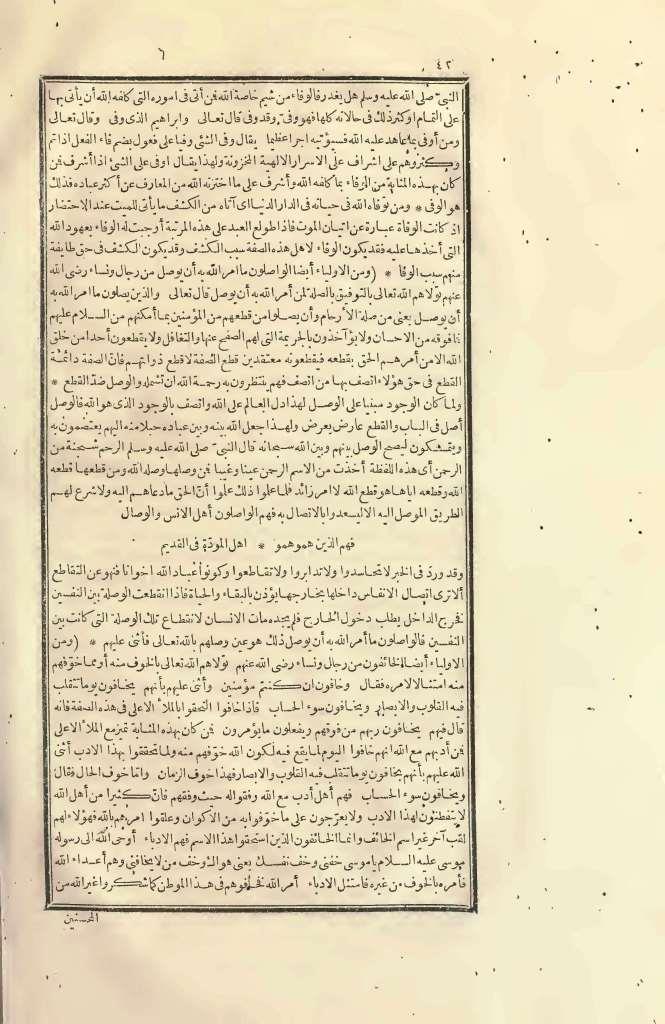 ٤٢
٦
النبي صلى الله عليه وسلم هل يغدر فالوفاء من شيم خاصة الله فمن أتى فى اموره التى كلفه الله أن يأتى بها
على التمام أو كثر ذلك فى حالاته كلها فهو وفىّ وقد وفى قال تعالى وابراهيم الذى وفى وقال تعالى
ومن أوفى بما عاهد عليه الله فسيؤتيه اجرا عظيما يقال وفى الشئ وفيا على فعول بضم فاء الفعل اذا تم
وكثر وهم على اشراف على الاسرار الالهية المخزونة ولهذا يقال اوفى على الشئ اذا أشرف فمن
كان بهذه المثابة من الوفاء بما كلفه الله وأشرف على ما اختزنه الله من المعارف عن أكثر عباده فذلك
هو الوفى * ومن توفاه الله فى حياته فى الدار الدنيا اى آتاه من الكشف ما يأتى للميت عند الاحتضار
اذ كانت الوفاة عبارة عن اتيان الموت فاذا طولع العبد على هذه المرتبة أوجبت له الوفاء بعهود الله
التى أخذها عليه فقد يكون الوفاء لاهل هذه الصفة سبب الكشف وقد يكون الكشف فى حق طايفة
منهم سبب الوفا * (ومن الاولياء أيضا الواصلون ما امر الله به أن يوصل من رجال ونساء رضى الله
عنهم تولاهم الله تعالى بالتوفيق بالصلة لمن أمر الله به أن يوصل قال تعالى والذين يصلون ما امر الله به
أن يوصل يعنى من صلة الأرحام وأن يصلوا من قطعهم من المؤمنين بما أمكنهم من السلام عليهم
فما فوقه من الاحسان ولا يؤاخذون بالجريمة التى لهم الصفح عنها والتغافل ولا يقطعون أحدا من خلق
الله الا من أمرهم الحق بقطعه فيقطعونه معتقدين قطع الصفة لا قطع ذواتهم فان الصفة دائمة
القطع فى حق هؤلاء اتصف بها من اتصف فهم ينتظرون به رحمة الله ان تشمله والوصل ضد القطع *
ولما كان الوجود مبنيا على الوصل لهذا دل العالم على الله واتصف بالوجود الذى هو الله فالوصل
أصل فى الباب والقطع عارض يعرض ولهذا جعل الله بينه وبين عباده حبلا منه اليهم يعتصمون به
ويتمسكون ليصح الوصل بينهم وبين الله سبحانه قال النبى صلى الله عليه وسلم الرحم شجنة من
الرحمن أى هذه اللفظة أخذت من الاسم الرحمن عينا وغيبا فمن وصلها وصله الله ومن قطعها قطعه
الله وقطعه اياها هو قطع الله لا امر زائد فلما علموا ذلك علموا أن الحق ما دعاهم اليه ولا شرع لهم
الطريق الموصل اليه الا ليسعدوا بالاتصال به فهم الواصلون أهل الانس والوصال
فهم الذين همو همو * اهل المودّة فى القديم
وقد ورد فى الخبر لا تحاسدوا ولا تدابروا ولا تقاطعوا وكونوا عباد الله اخوانا فنهوا عن التقاطع
ألا ترى اتصال الانفاس داخلها بخارجها يؤذن بالبقاء والحياة فاذا انقطعت الوصلة بين النفسين
فخرج الداخل يطلب دخول الخارج فلم يجده مات الانسان لانقطاع تلك الوصلة التى كانت بين
النفسين فالواصلون ما أمر الله به أن يوصل ذلك هو عين وصلهم بالله تعالى فأثنى عليهم * (ومن
الاولياء أيضا الخائفون من رجال ونساء رضى الله عنهم تولاهم الله تعالى بالخوف منه أو مما خوّفهم
منه امتثالا لامره فقال وخافون ان كنتم مؤمنين وأثنى عليهم بأنهم يخافون يوما تتقلب
فيه القلوب والابصار ويخافون سوء الحساب فاذا خافوا التحقوا بالملأ الاعلى فى هذه الصفة فانه
قال فيهم يخافون ربهم من فوقهم ويفعلون ما يؤمرون فمن كان بهذه المثابة تميز مع الملأ الاعلى
فمن أدبهم مع الله انهم خافوا اليوم لما يقع فيه لكون الله خوّفهم منه ولما تحققوا بهذا الادب أثنى
الله عليهم بأنهم يخافون يوما تتقلب فيه القلوب والابصار فهذا خوف الزمان واما خوف الحال فقال
ويخافون سوء الحساب فهم أهل أدب مع الله وفقوا له حيث وفقهم فان كثيرا من أهل الله
لا يتفطنون لهذا الادب ولا يعرّجون على ما خوّفوا به من الأكوان وعلقوا امرهم بالله فهؤلاء لهم
لقب آخر غير اسم الخائف وانما الخائفون الذين استحقوا هذا الاسم فهم الادباء أوحى الله الى رسوله
موسى عليه السلام يا موسى خفنى وخف نفسك يعنى هواك وخف من لا يخافنى وهم أعداء الله
فأمره بالخوف من غيره فامتثل الادباء أمر الله فخافوهم فى هذا الموطن كما شكروا غير الله من
المحسنين